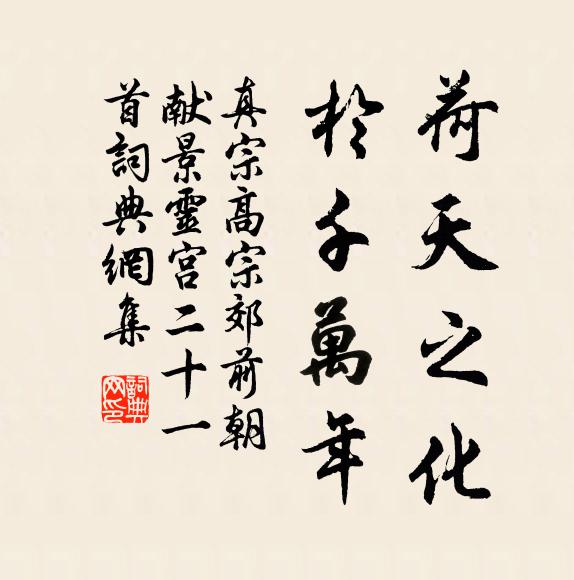 荷天之化
於千萬年
真宗高宗郊前朝
献景靈宮二十一
首詞典網集
詞典
网印